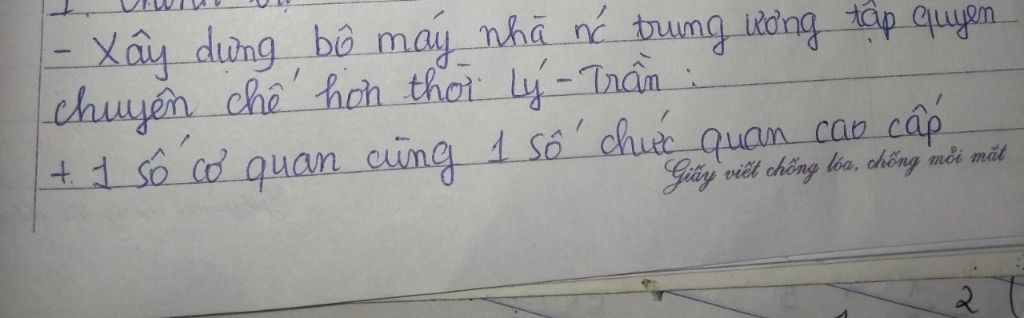 - Xây dựng bộ máy nhà nc trung ương tập quyền
chuyên chế hơn thời Lý - Trần :
+ 1 số cơ quan cùng 1 số chức quan cao cấp
Giấy viết chống lóa, chống mỏi mắt
2